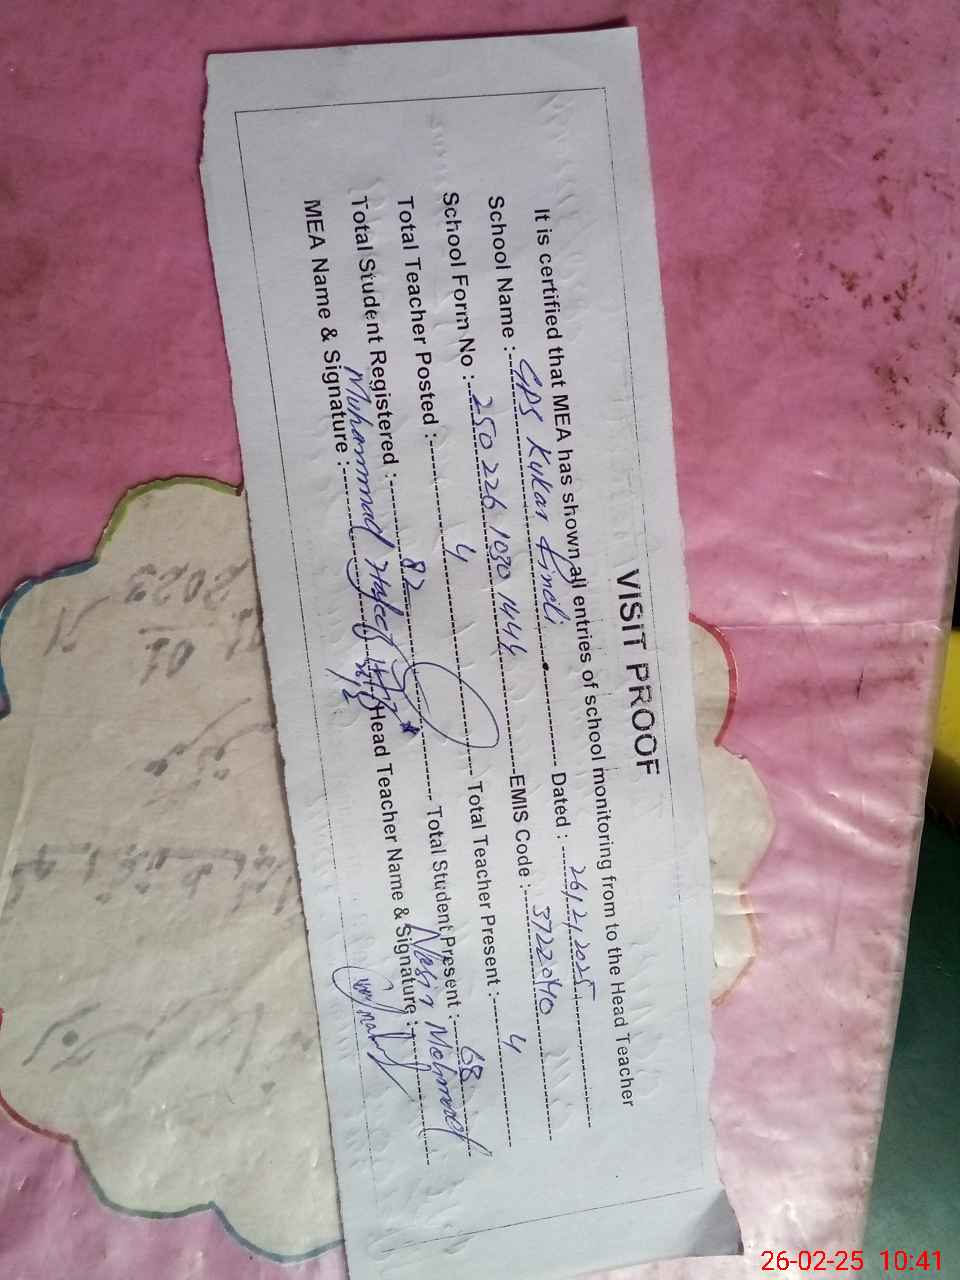 VISIT PROOF
It is certified that MEA has shown all entries of school monitoring from to the Head Teacher
School Name : GPS Kukar Dated : 26/2/2025
School Form No : 250 226 1030 1444 EMIS Code : 3722040
Total Teacher Posted : 4 Total Teacher Present : 4
Total Student Registered : 82 Total Student Present : 68
MEA Name & Signature : Muhammad Hafeez Head Teacher Name & Signature : Nasir Mehmood
26-02-25 10:41